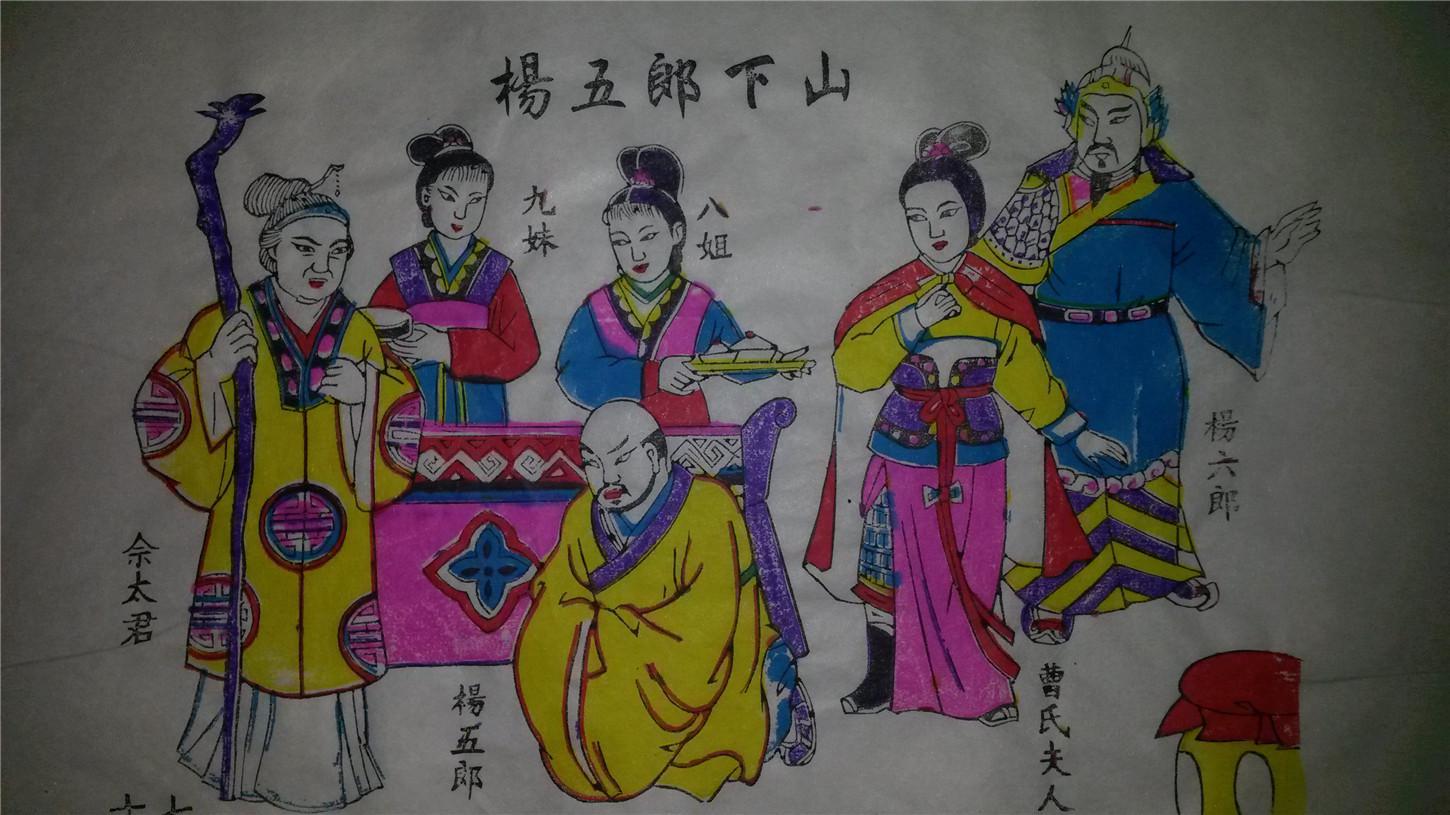 楊五郎下山
九妹
八姐
楊六郎
佘太君
楊五郎
曹氏夫人